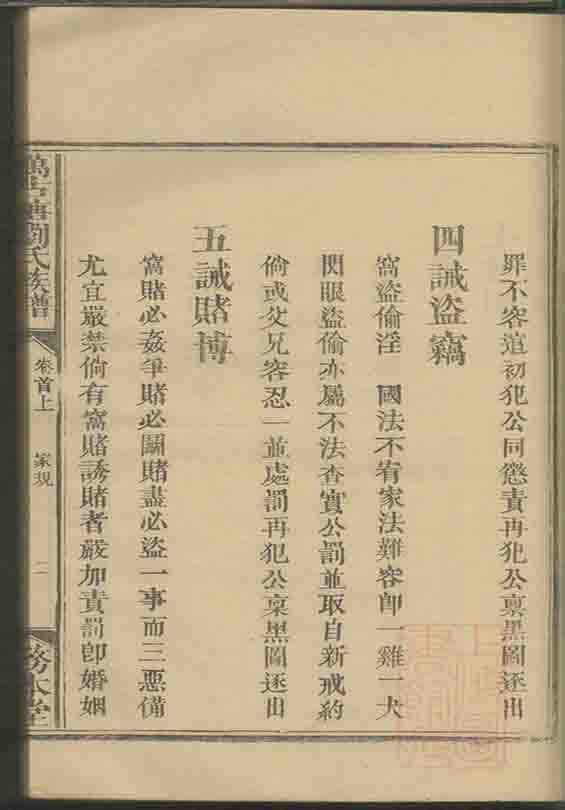 罪不容逭初犯公同懲責再犯公稟黑圖逐出
四誡盜竊
窩盜偷淫　國法不宥家法難容卽一雞一犬
閃眼盜偷亦屬不法查實公罰並取自新戒約
倘或父兄容忍一並處罰再犯公稟黑圖逐出
五誡賭博
窩賭必姦爭賭必鬭賭盡必盜一事而三惡備
尤宜嚴禁倘有窩賭誘賭者嚴加責罰卽婚姻
劉氏族譜
卷首上
家規
二
務本堂